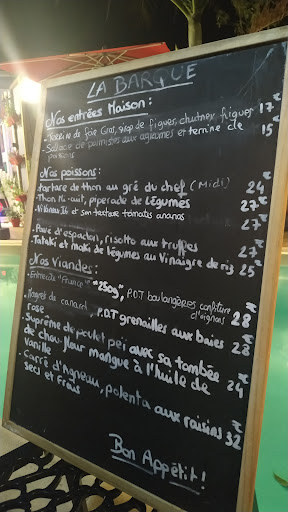 LA BARQUE
Nos entrées Maison:
Terrine de foie Gras, sirop de figues, chutney figues 17€
Salade de palmistes aux agrumes et terrine de 15€
poissons
Nos poissons:
tartare de thon au gré du chef (Midi) 24€
Thon Mi-cuit, piperade de Légumes 27€
et son tartare tomates ananas 27€
Pavé d'espadon, risotto aux truffes 27€
Tataki et maki de légumes au Vinaigre de riz 25€
Nos Viandes:
Entrecôte "France" "250g", P.D.T boulangères confiture 28€
d'oignons
Magret de canard P.D.T grenailles aux baies 28€
rose
Suprême de poulet pei avec sa tombée 24€
de chou-fleur mangue à l'huile de
vanille
Carré d'Agneau, polenta aux raisins 32€
secs et frais
Bon Appétit!